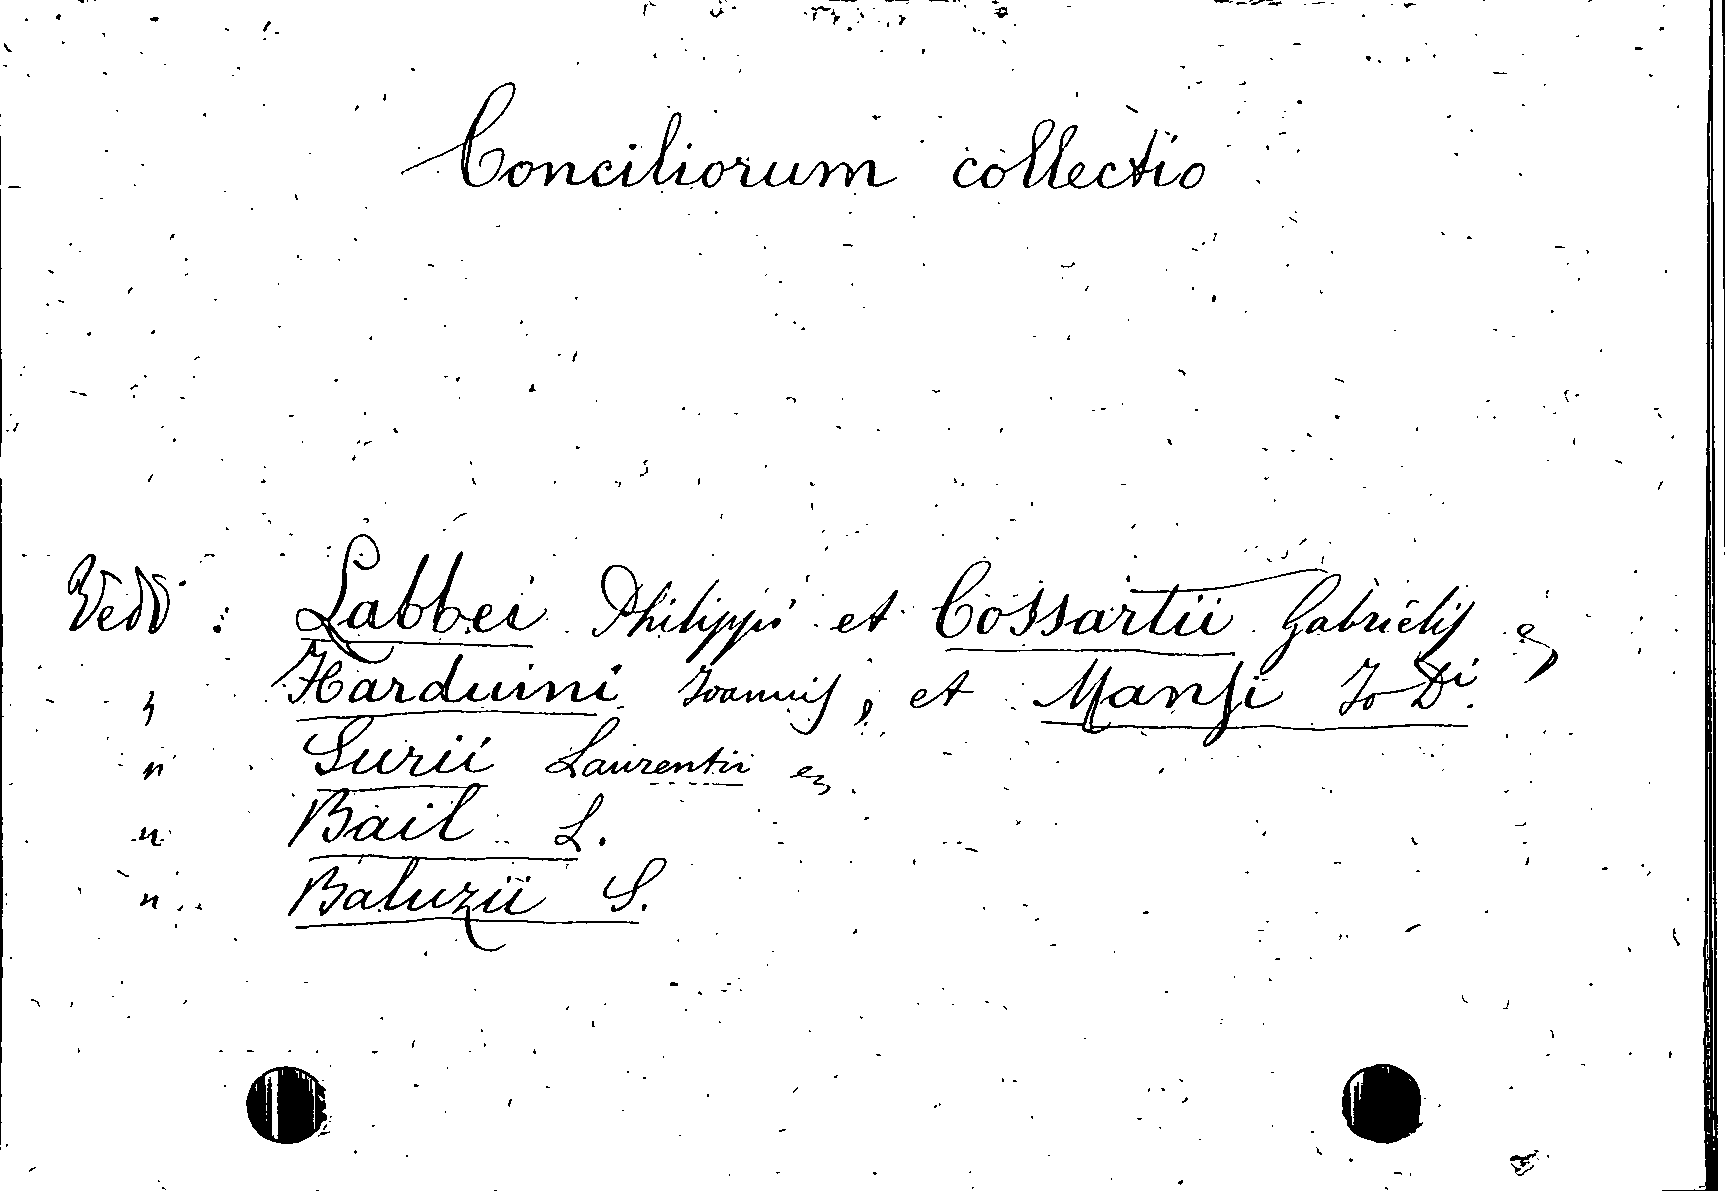 Conciliorum collectio
Vedi : Labbei Philippi et Cossartii Gabrielis e
" Harduini Joannis, et Mansi Jo Di.
" Surii Laurentii e
" Bail L.
" Baluzii S.